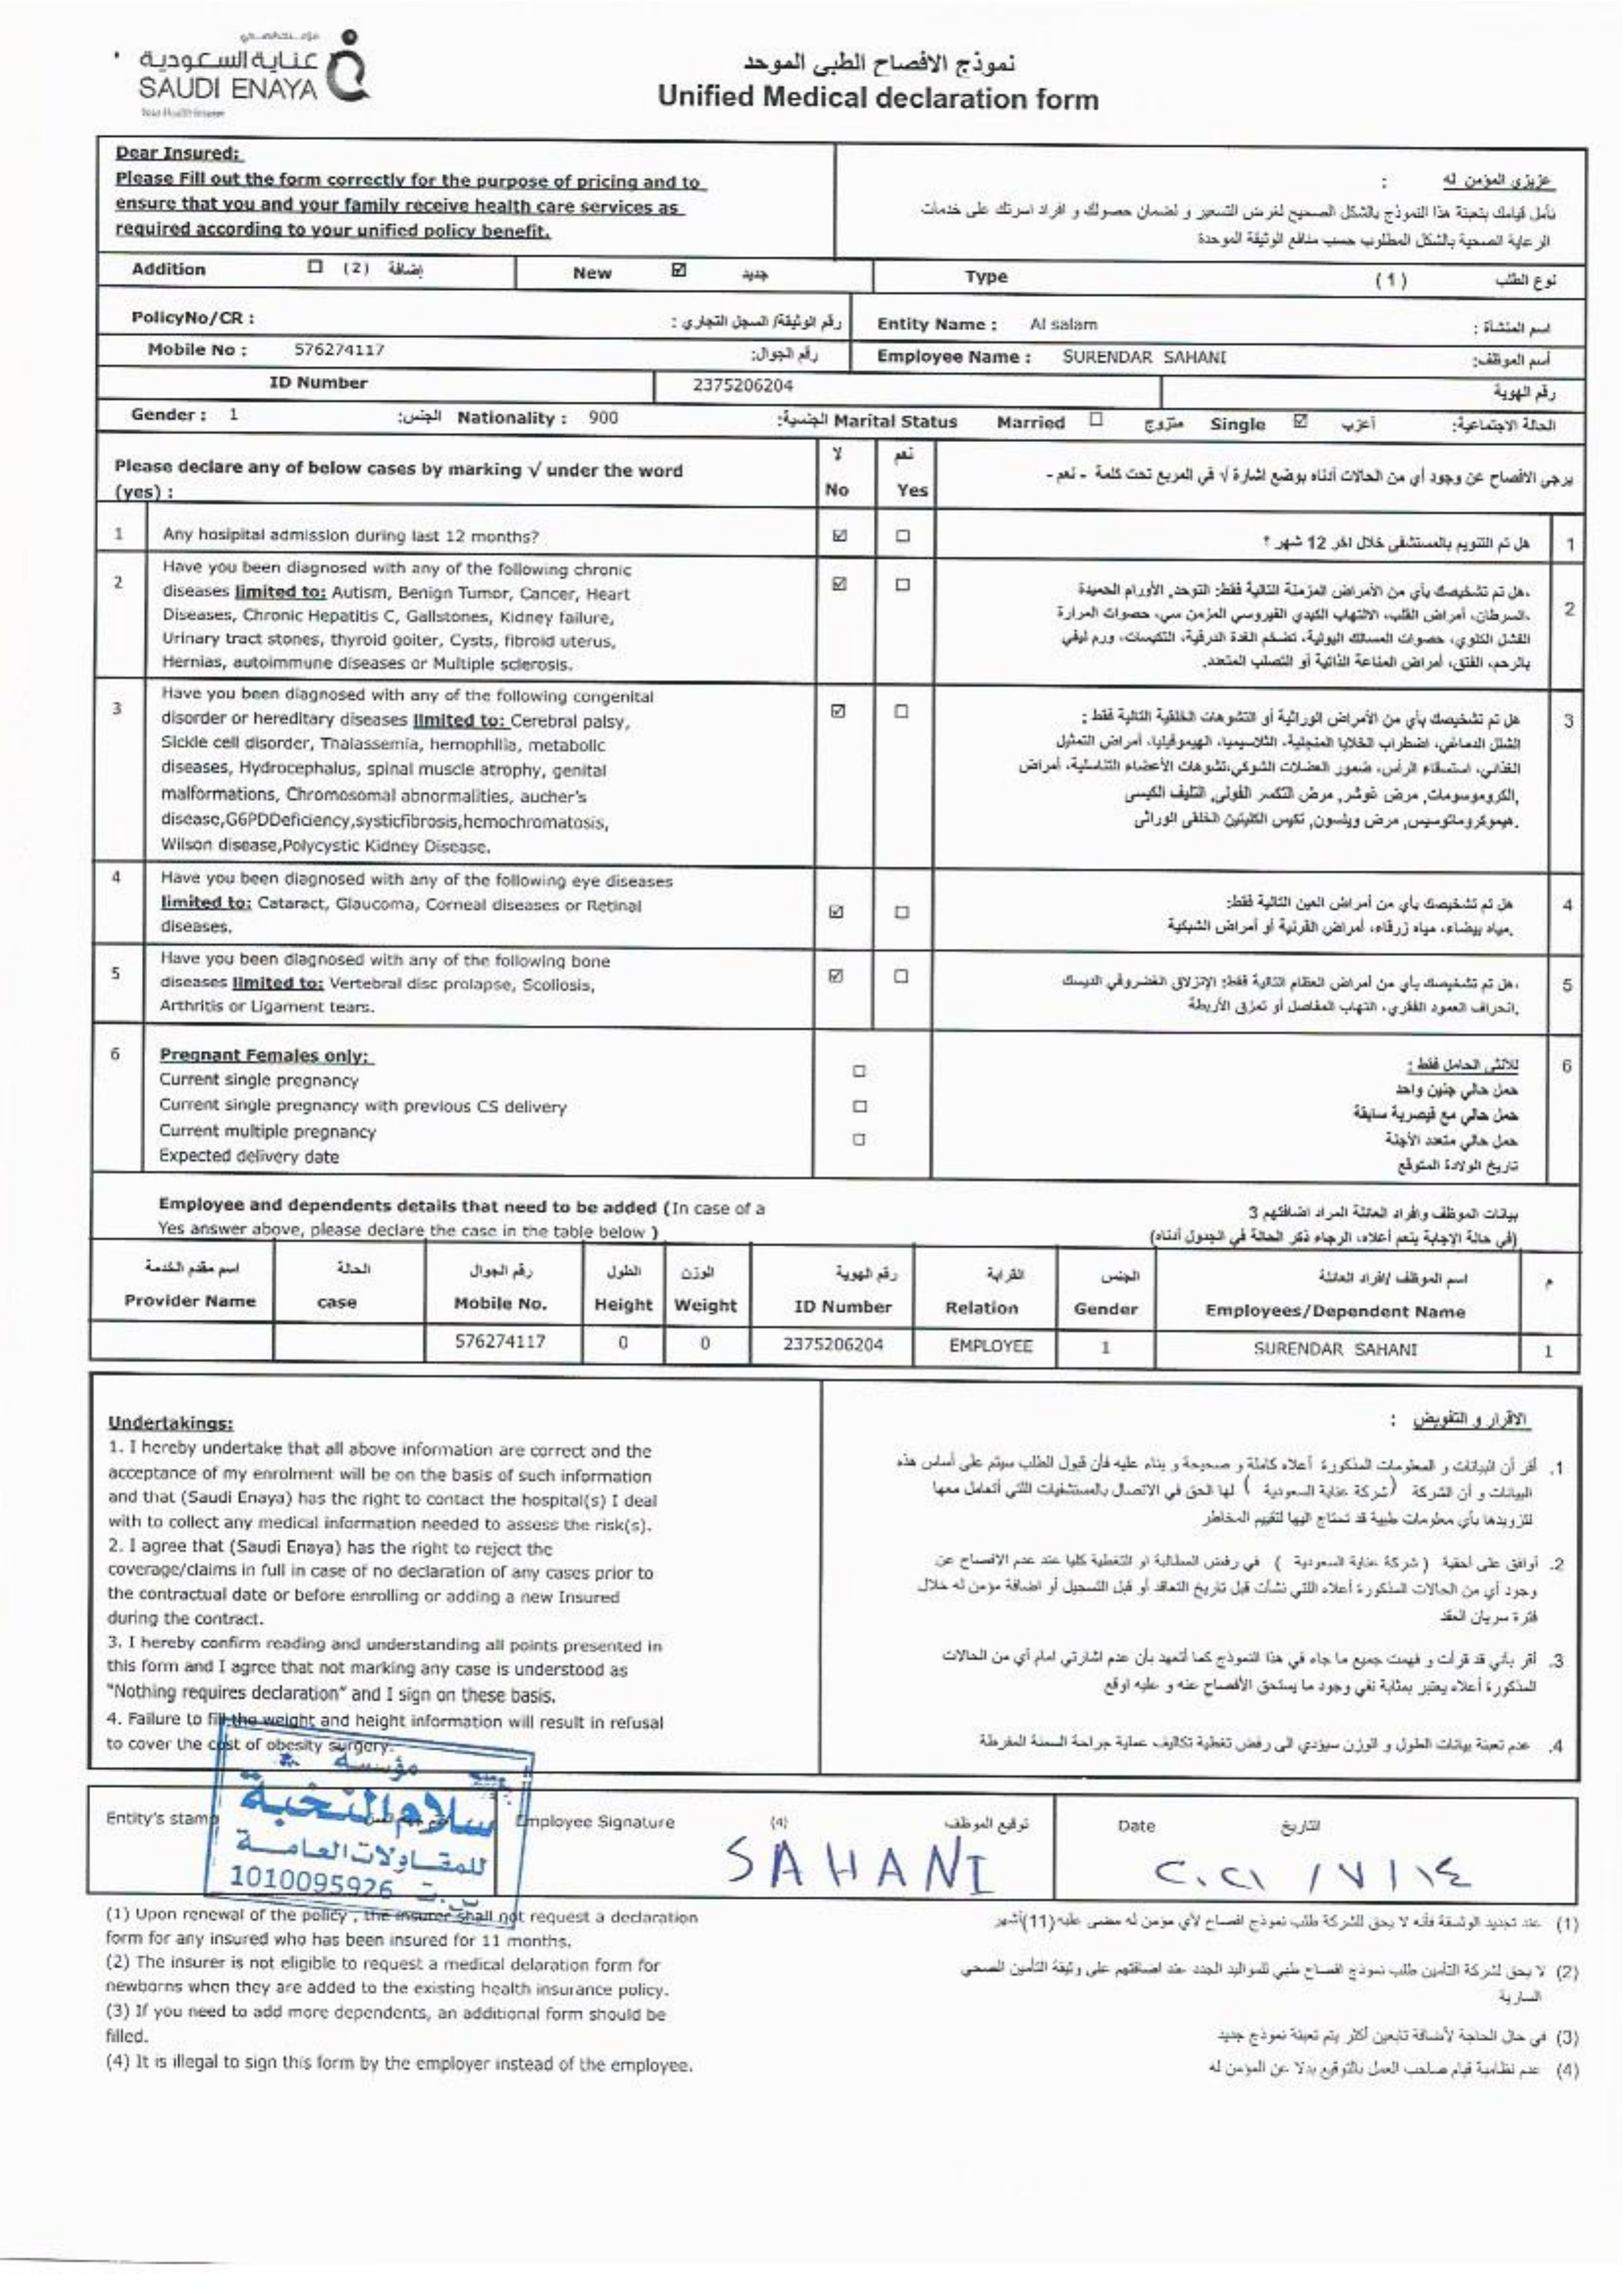 عناية السعودية
SAUDI ENAYA
نموذج الافصاح الطبي الموحد
Unified Medical declaration form
Dear Insured:
Please Fill out the form correctly for the purpose of pricing and to
ensure that you and your family receive health care services as
required according to your unified policy benefit.
عزيزي المؤمن له :
نأمل قيامك بتعبئة هذا النموذج بالشكل الصحيح لغرض التسعير و لضمان حصولك و افراد اسرتك على خدمات
الرعاية الصحية بالشكل المطلوب حسب منافع الوثيقة الموحدة
Addition ☐ (2) إضافة New ☑ جديد Type (1) نوع الطلب
PolicyNo/CR : رقم الوثيقة/ السجل التجاري : Entity Name : Al salam اسم المنشأة :
Mobile No : 576274117 رقم الجوال: Employee Name : SURENDAR SAHANI أسم الموظف:
ID Number 2375206204 رقم الهوية
Gender : 1 الجنس: Nationality : 900 الجنسية: Marital Status Married ☐ متزوج Single ☑ أعزب الحالة الاجتماعية:
Please declare any of below cases by marking √ under the word
(yes) :
لا نعم
No Yes
يرجى الافصاح عن وجود أي من الحالات أدناه بوضع اشارة √ في المربع تحت كلمة - نعم -
1 Any hosipital admission during last 12 months? ☑ ☐ هل تم التنويم بالمستشفى خلال اخر 12 شهر ؟ 1
2 Have you been diagnosed with any of the following chronic
diseases limited to: Autism, Benign Tumor, Cancer, Heart
Diseases, Chronic Hepatitis C, Gallstones, Kidney failure,
Urinary tract stones, thyroid goiter, Cysts, fibroid uterus,
Hernias, autoimmune diseases or Multiple sclerosis.
☑ ☐
هل تم تشخيصك بأي من الأمراض المزمنة التالية فقط: التوحد, الأورام الحميدة,
السرطان، أمراض القلب، الالتهاب الكبدي الفيروسي المزمن سي، حصوات المرارة،
الفشل الكلوي، حصوات المسالك البولية، تضخم الغدة الدرقية، التكيسات، ورم ليفي
بالرحم، الفتق، أمراض المناعة الذاتية أو التصلب المتعدد.
2
3 Have you been diagnosed with any of the following congenital
disorder or hereditary diseases limited to: Cerebral palsy,
Sickle cell disorder, Thalassemia, hemophilia, metabolic
diseases, Hydrocephalus, spinal muscle atrophy, genital
malformations, Chromosomal abnormalities, aucher's
disease,G6PDDeficiency,systicfibrosis,hemochromatosis,
Wilson disease,Polycystic Kidney Disease.
☑ ☐
هل تم تشخيصك بأي من الأمراض الوراثية أو التشوهات الخلقية التالية فقط :
الشلل الدماغي، اضطراب الخلايا المنجلية، الثلاسيميا، الهيموفيليا، أمراض التمثيل
الغذائي، استسقاء الرأس، ضمور العضلات الشوكي،تشوهات الأعضاء التناسلية، أمراض
الكروموسومات, مرض غوشر, مرض التكسر الفولي, التليف الكيسي,
هيموكروماتوسيس, مرض ويلسون, تكيس الكليتين الخلقي الوراثي.
3
4 Have you been diagnosed with any of the following eye diseases
limited to: Cataract, Glaucoma, Corneal diseases or Retinal
diseases.
☑ ☐
هل تم تشخيصك بأي من أمراض العين التالية فقط:
مياه بيضاء، مياه زرقاء، أمراض القرنية أو أمراض الشبكية.
4
5 Have you been diagnosed with any of the following bone
diseases limited to: Vertebral disc prolapse, Scoliosis,
Arthritis or Ligament tears.
☑ ☐
هل تم تشخيصك بأي من أمراض العظام التالية فقط: الإنزلاق الغضروفي الديسك،
انحراف العمود الفقري، التهاب المفاصل أو تمزق الأربطة.
5
6 Pregnant Females only:
Current single pregnancy ☐
Current single pregnancy with previous CS delivery ☐
Current multiple pregnancy ☐
Expected delivery date
للأنثى الحامل فقط : 6
حمل حالي جنين واحد
حمل حالي مع قيصرية سابقة
حمل حالي متعدد الأجنة
تاريخ الولادة المتوقع
Employee and dependents details that need to be added (In case of a
Yes answer above, please declare the case in the table below )
بيانات الموظف وافراد العائلة المراد اضافتهم 3
(في حالة الإجابة بنعم أعلاه، الرجاء ذكر الحالة في الجدول أدناه)
اسم مقدم الخدمة الحالة رقم الجوال الطول الوزن رقم الهوية القرابة الجنس اسم الموظف /افراد العائلة م
Provider Name case Mobile No. Height Weight ID Number Relation Gender Employees/Dependent Name
576274117 0 0 2375206204 EMPLOYEE 1 SURENDAR SAHANI 1
Undertakings:
1. I hereby undertake that all above information are correct and the
acceptance of my enrolment will be on the basis of such information
and that (Saudi Enaya) has the right to contact the hospital(s) I deal
with to collect any medical information needed to assess the risk(s).
2. I agree that (Saudi Enaya) has the right to reject the
coverage/claims in full in case of no declaration of any cases prior to
the contractual date or before enrolling or adding a new Insured
during the contract.
3. I hereby confirm reading and understanding all points presented in
this form and I agree that not marking any case is understood as
"Nothing requires declaration" and I sign on these basis.
4. Failure to fill the weight and height information will result in refusal
to cover the cost of obesity surgery.
الاقرار و التفويض :
1. أقر أن البيانات و المعلومات المذكورة أعلاه كاملة و صحيحة و بناء عليه فأن قبول الطلب سيتم على أساس هذه
البيانات و أن الشركة (شركة عناية السعودية ) لها الحق في الاتصال بالمستشفيات اللتي أتعامل معها
لتزويدها بأي معلومات طبية قد تحتاج اليها لتقييم المخاطر
2. أوافق على أحقية ( شركة عناية السعودية ) في رفض المطالبة او التغطية كليا عند عدم الافصاح عن
وجود أي من الحالات المذكورة أعلاه اللتي نشأت قبل تاريخ التعاقد أو قبل التسجيل أو اضافة مؤمن له خلال
فترة سريان العقد
3. أقر بأني قد قرأت و فهمت جميع ما جاء في هذا النموذج كما أتعهد بأن عدم اشارتي امام أي من الحالات
المذكورة أعلاه يعتبر بمثابة نفي وجود ما يستحق الأفصاح عنه و عليه اوقع
4. عدم تعبئة بيانات الطول و الوزن سيؤدي الى رفض تغطية تكاليف عملية جراحة السمنة المفرطة
Entity's stamp
مؤسسة
سلام النخبة
للمقاولات العامة
1010095926 س.ت
Employee Signature (4) توقيع الموظف
SAHANI
Date التاريخ
٢٠٢١ / ٧ / ١٤
(1) Upon renewal of the policy , the insurer shall not request a declaration
form for any insured who has been insured for 11 months.
(2) The insurer is not eligible to request a medical delaration form for
newborns when they are added to the existing health insurance policy.
(3) If you need to add more dependents, an additional form should be
filled.
(4) It is illegal to sign this form by the employer instead of the employee.
(1) عند تجديد الوثيقة فأنه لا يحق للشركة طلب نموذج افصاح لأي مؤمن له مضى عليه (11)أشهر
(2) لا يحق لشركة التأمين طلب نموذج افصاح طبي للمواليد الجدد عند اضافتهم على وثيقة التأمين الصحي
السارية
(3) في حال الحاجة لأضافة تابعين أكثر يتم تعبئة نموذج جديد
(4) عدم نظامية قيام صاحب العمل بالتوقيع بدلا عن المؤمن له